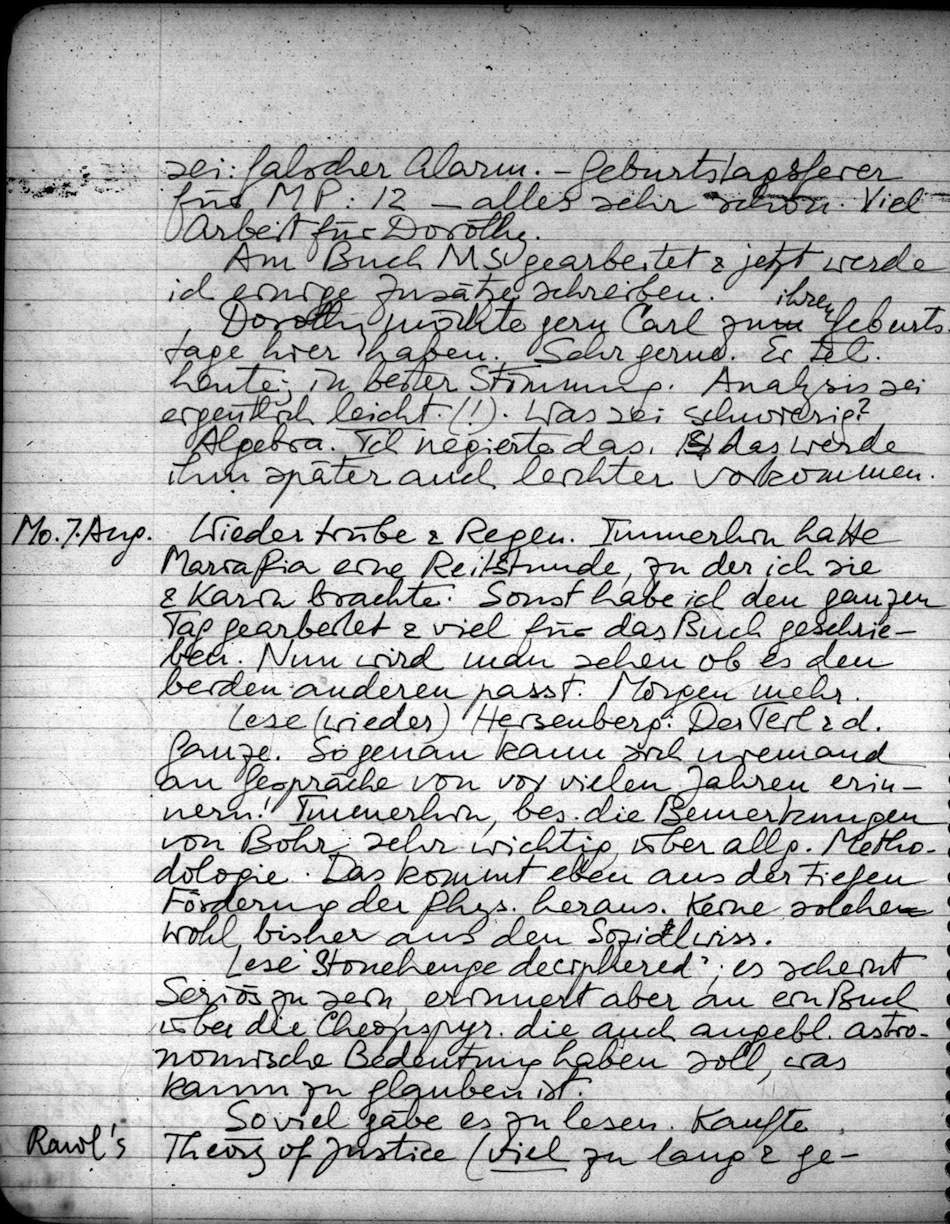 sei: falscher Alarm. – Geburtstagsfeier
für MP: 12 – alles sehr schön. Viel
Arbeit für Dorothy.
Am Buch MS gearbeitet & jetzt werde
ich einige Zusätze schreiben.
ihren
Dorothy möchte gern Carl zum Geburts-
tage hier haben. Sehr gerne. Er tel.
heute; in bester Stimmung. Analysis sei
eigentlich leicht (!). Was sei schwierig?
Algebra. Ich negierte das. das werde
ihm später auch leichter vorkommen.
Mo. 7. Aug. Wieder trübe & Regen. Immerhin hatte
Maria Pia eine Reitstunde, zu der ich sie
& Karin brachte. Sonst habe ich den ganzen
Tag gearbeitet & viel für das Buch geschrie-
ben. Nun wird man sehen ob es den
beiden anderen passt. Morgen mehr.
Lese (wieder) Heisenberg: Der Teil & d.
Ganze. So genau kann sich niemand
an Gespräche von vor vielen Jahren erin-
nern! Immerhin, bes. die Bemerkungen
von Bohr, sehr wichtig über allg. Metho-
dologie. Das kommt eben aus der tiefen
Förderung der Phys. heraus. Keine solche
wohl bisher aus den Sozialwiss.
Lese "Stonehenge deciphered"; es scheint
Seriös zu sein, erinnert aber an ein Buch
über die Cheopspyr. die auch angebl. astro-
nomische Bedeutung haben soll, was
kaum zu glauben ist.
Soviel gäbe es zu lesen. Kaufte
Rawl's Theory of Justice (viel zu lang & ge-